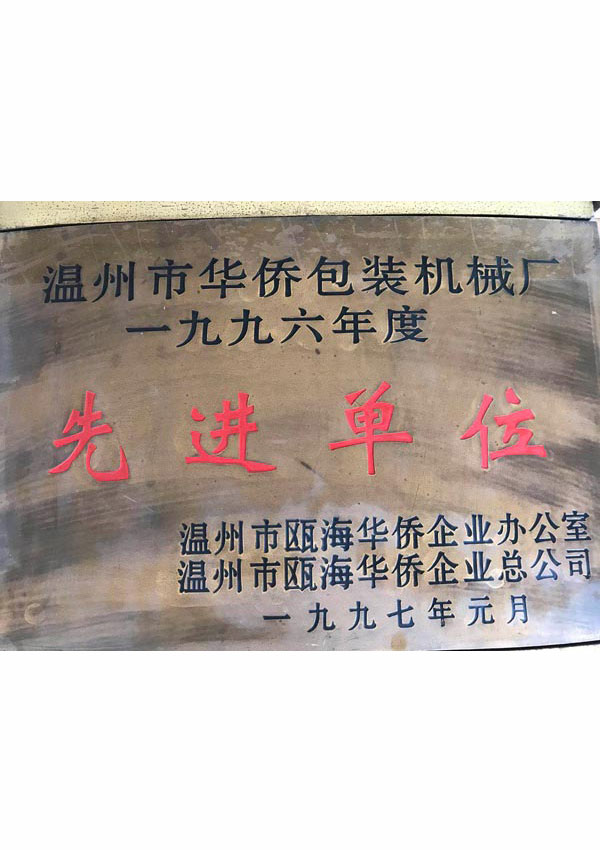 温州市华侨包装机械厂
一九九六年度
先进单位
温州市瓯海华侨企业办公室
温州市瓯海华侨企业总公司
一九九七年元月